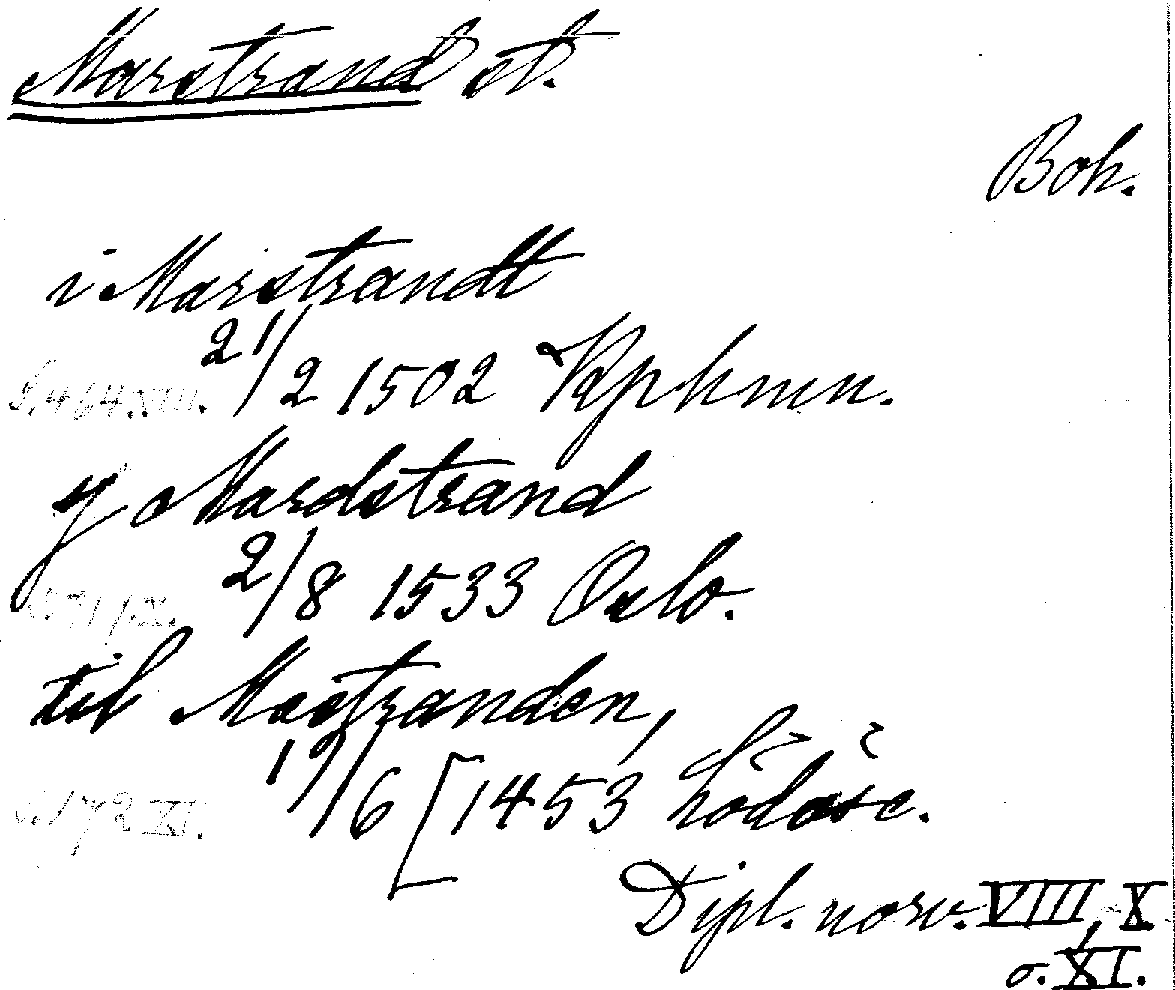 Marstrand st.
Boh.
i Marstrandt
S. 464 XIII. 21/2 1502 Kphmn.
y Mardstrand
2/8 1533 Oslo.
til Mastranden,
S. 172 XI. 19/6 [1453 Lödöse.
Dipl. norv. VIII, X
o. XI.